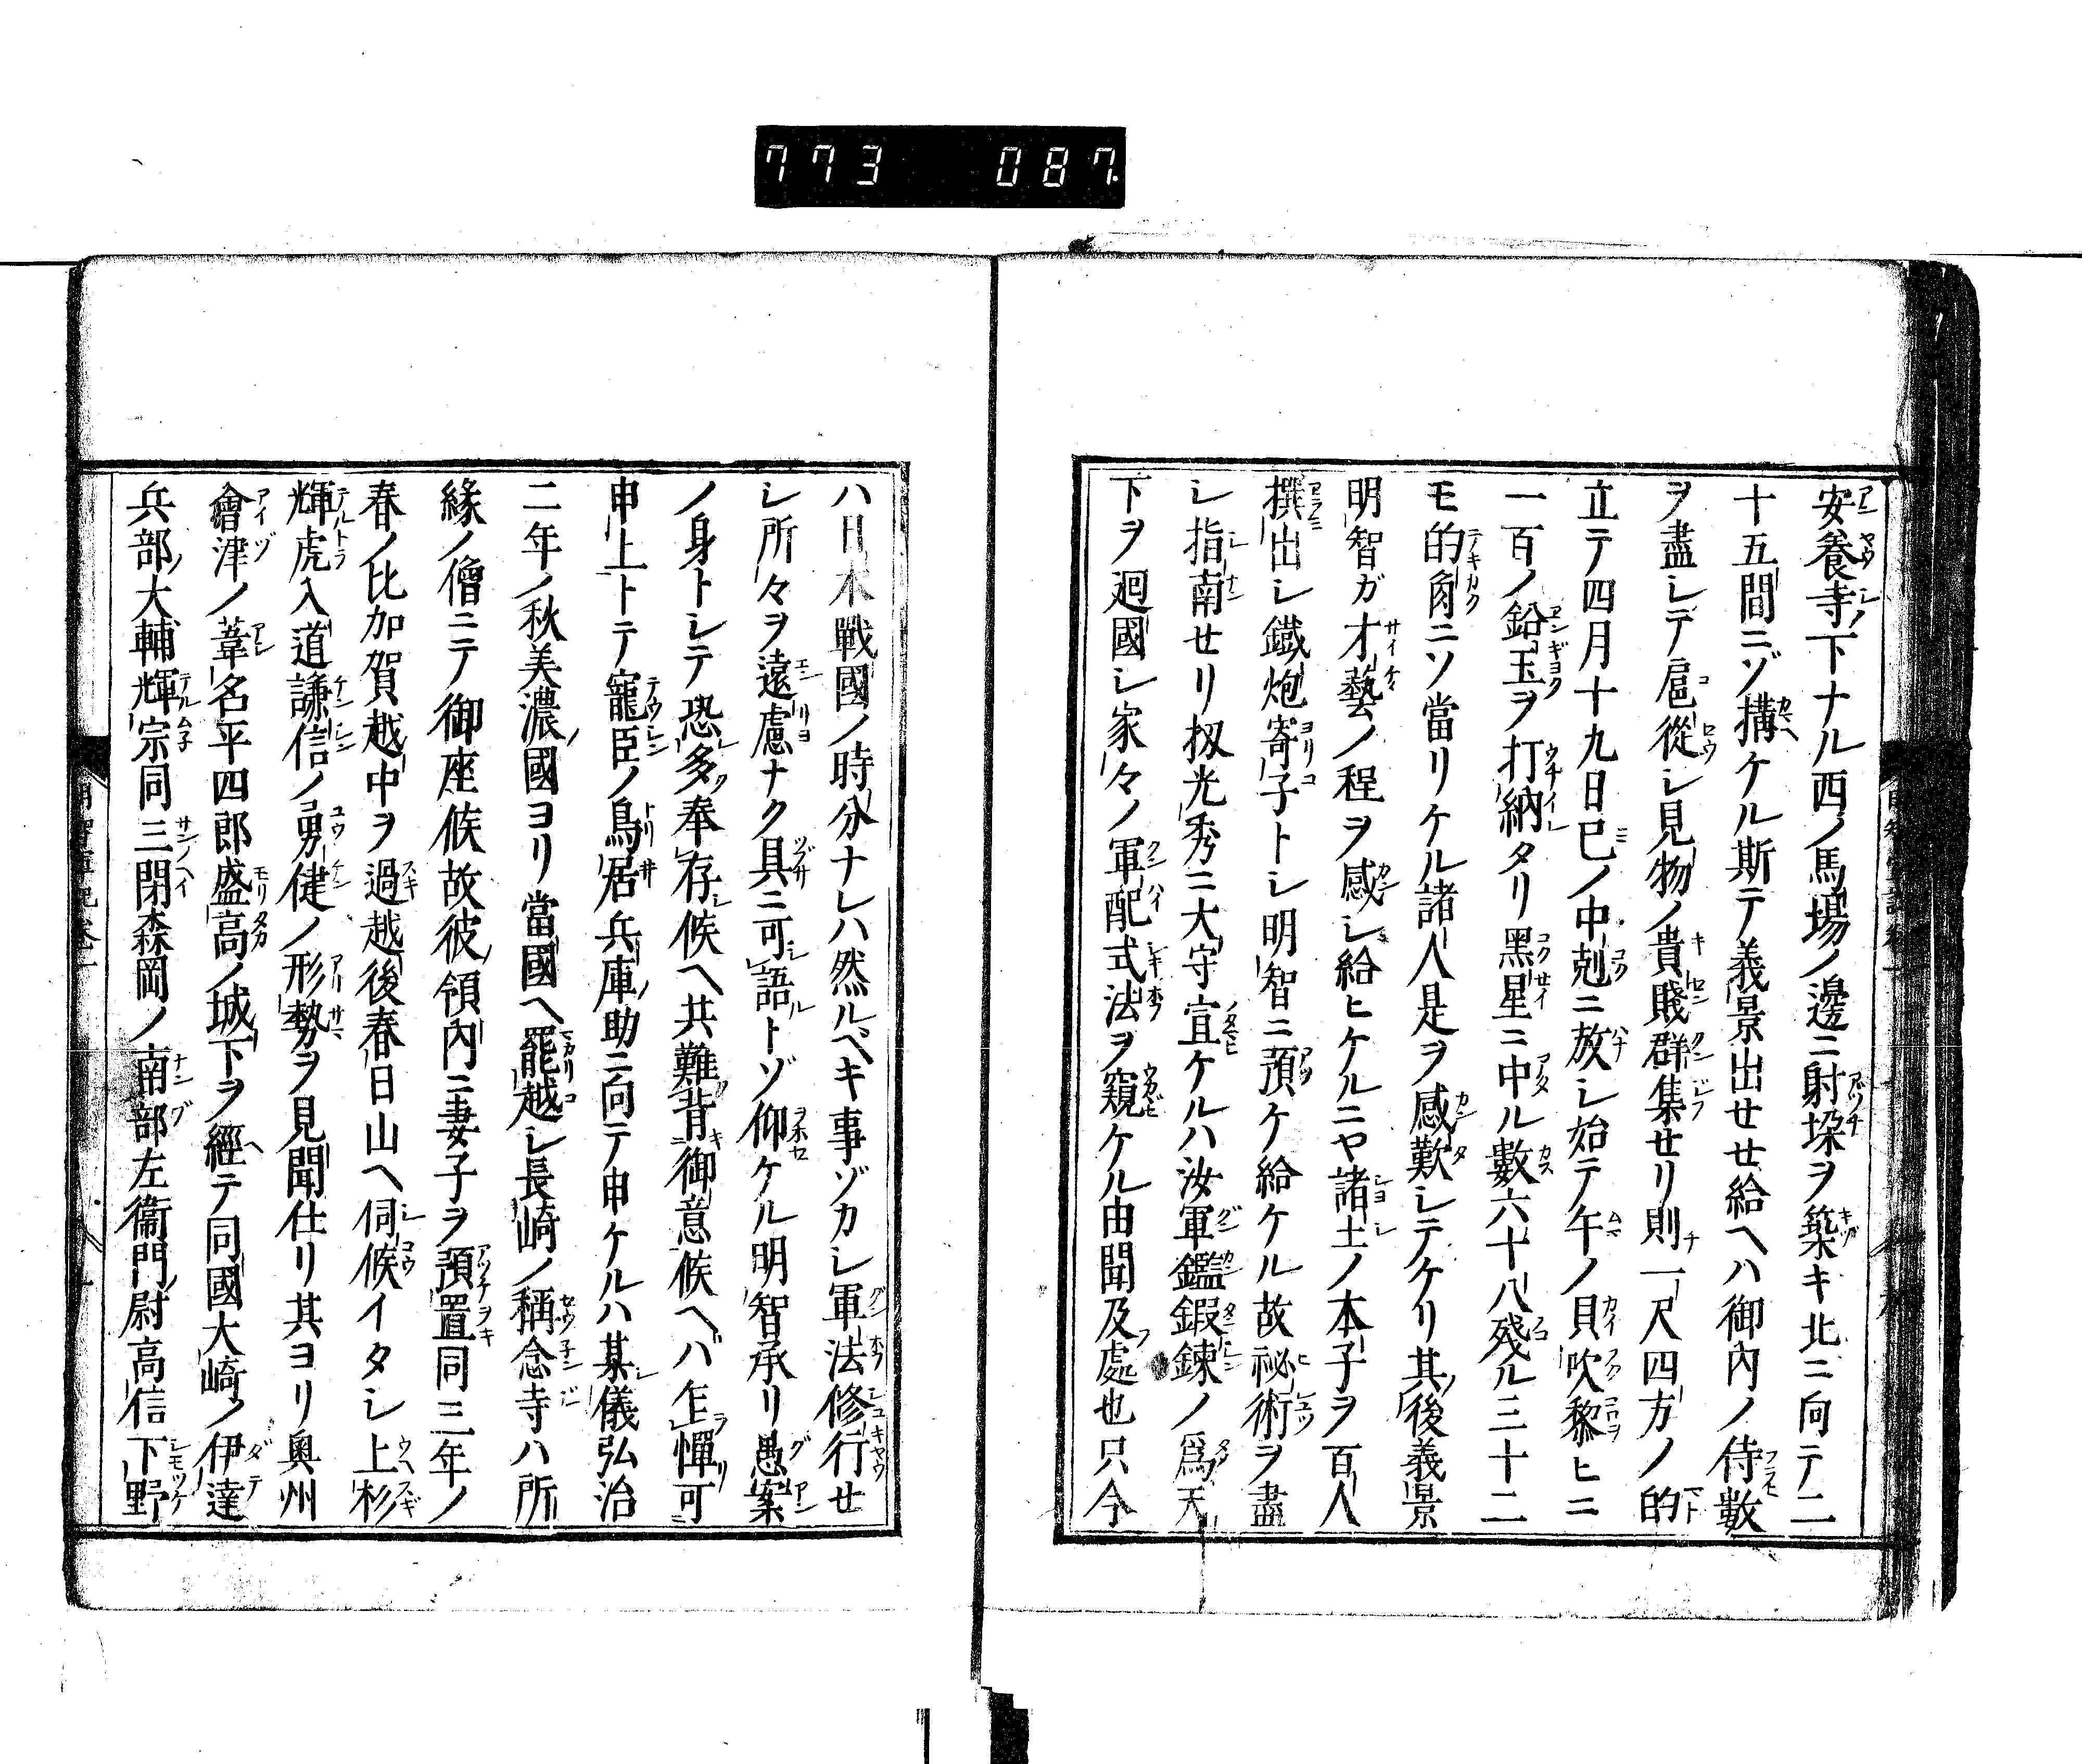 773 087
安養寺ノ下ナル西ノ馬場ノ邊ニ射垜ヲ築キ北ニ向テ二
十五間ニゾ搆ケル斯テ義景出セセ給ヘハ御内ノ侍數
ヲ盡シテ扈從シ見物ノ貴賤群集セリ則一尺四方ノ的
立テ四月十九日巳ノ中剋ニ放シ始テ午ノ貝吹黎ヒニ
一百ノ鉛玉ヲ打納タリ黑星ニ中ル數六十八殘ル三十二
モ的角ニソ當リケル諸人是ヲ感歎シテケリ其後義景
明智ガ才藝ノ程ヲ感シ給ヒケルニヤ諸士ノ本子ヲ百人
撰出シ鐵炮寄子トシ明智ニ預ケ給ケル故祕術ヲ盡
シ指南セリ扨光秀ニ大守宣ケルハ汝軍鑑鍜鍊ノ爲天
下ヲ迴國シ家々ノ軍配式法ヲ窺ケル由聞及處也只今
ハ日本戰國ノ時分ナレハ然ルベキ事ゾカシ軍法修行セ
シ所々ヲ遠慮ナク具ニ可語トゾ仰ケル明智承リ愚案
ノ身トシテ恐多奉存候ヘ共難背御意候ヘバ乍憚可
申上トテ寵臣ノ鳥居兵庫助ニ向テ申ケルハ某儀弘治
二年ノ秋美濃國ヨリ當國ヘ罷越シ長崎ノ稱念寺ハ所
緣ノ僧ニテ御座候故彼領内ニ妻子ヲ預置同三年ノ
春ノ比加賀越中ヲ過越後春日山ヘ伺候イタシ上杉
輝虎入道謙信ノ勇健ノ形勢ヲ見聞仕リ其ヨリ奥州
會津ノ葦名平四郎盛高ノ城下ヲ經テ同國大崎ノ伊達
兵部大輔輝宗同三閉森岡ノ南部左衞門尉高信下野